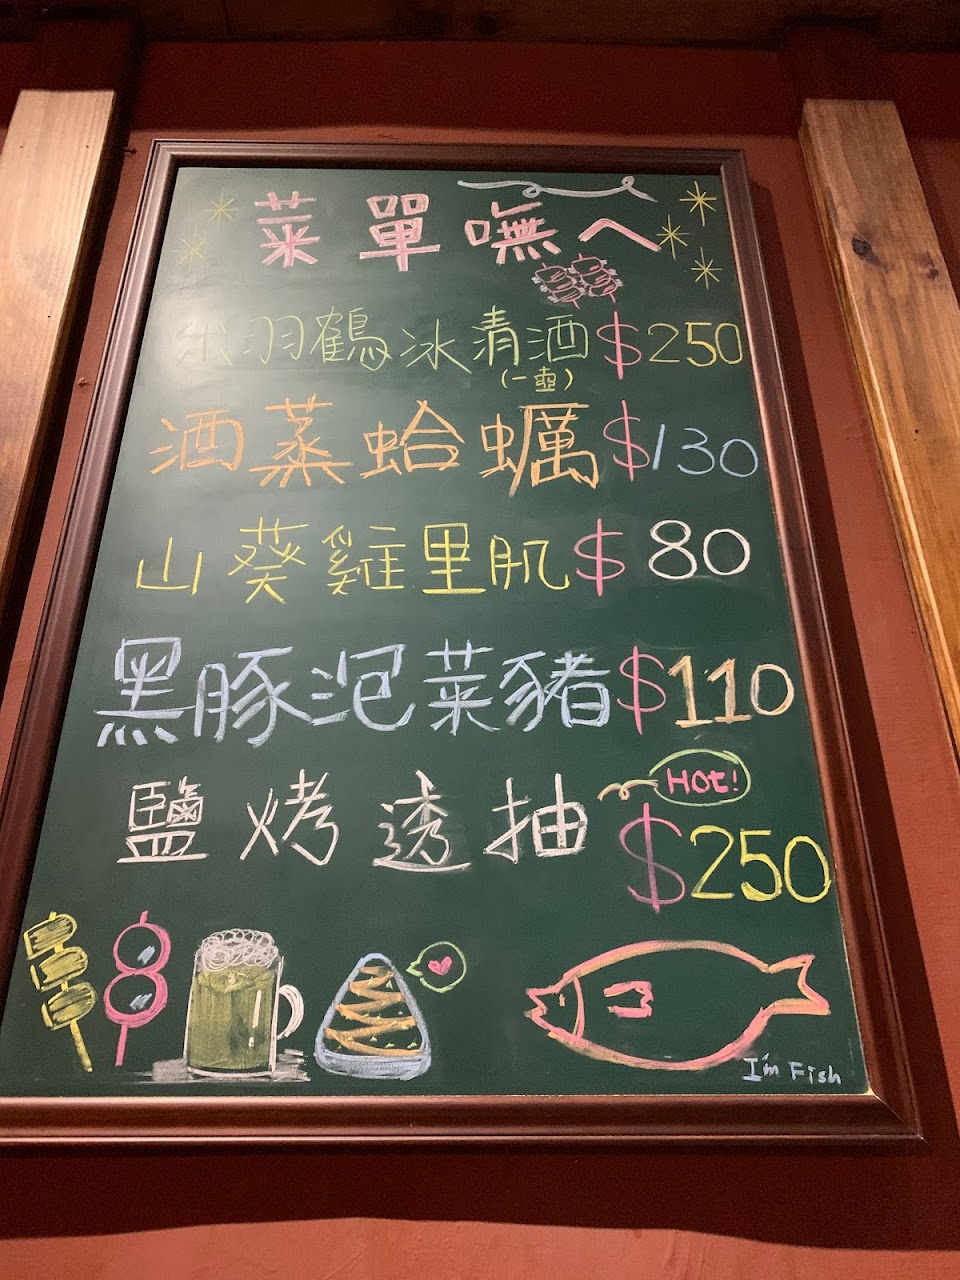 菜單嘸ㄟ
出羽鶴冰清酒 $250
(一壺)
酒蒸蛤蠣 $130
山葵雞里肌 $80
黑豚泡菜豬 $110
Hot!
鹽烤透抽 $250
I'm Fish